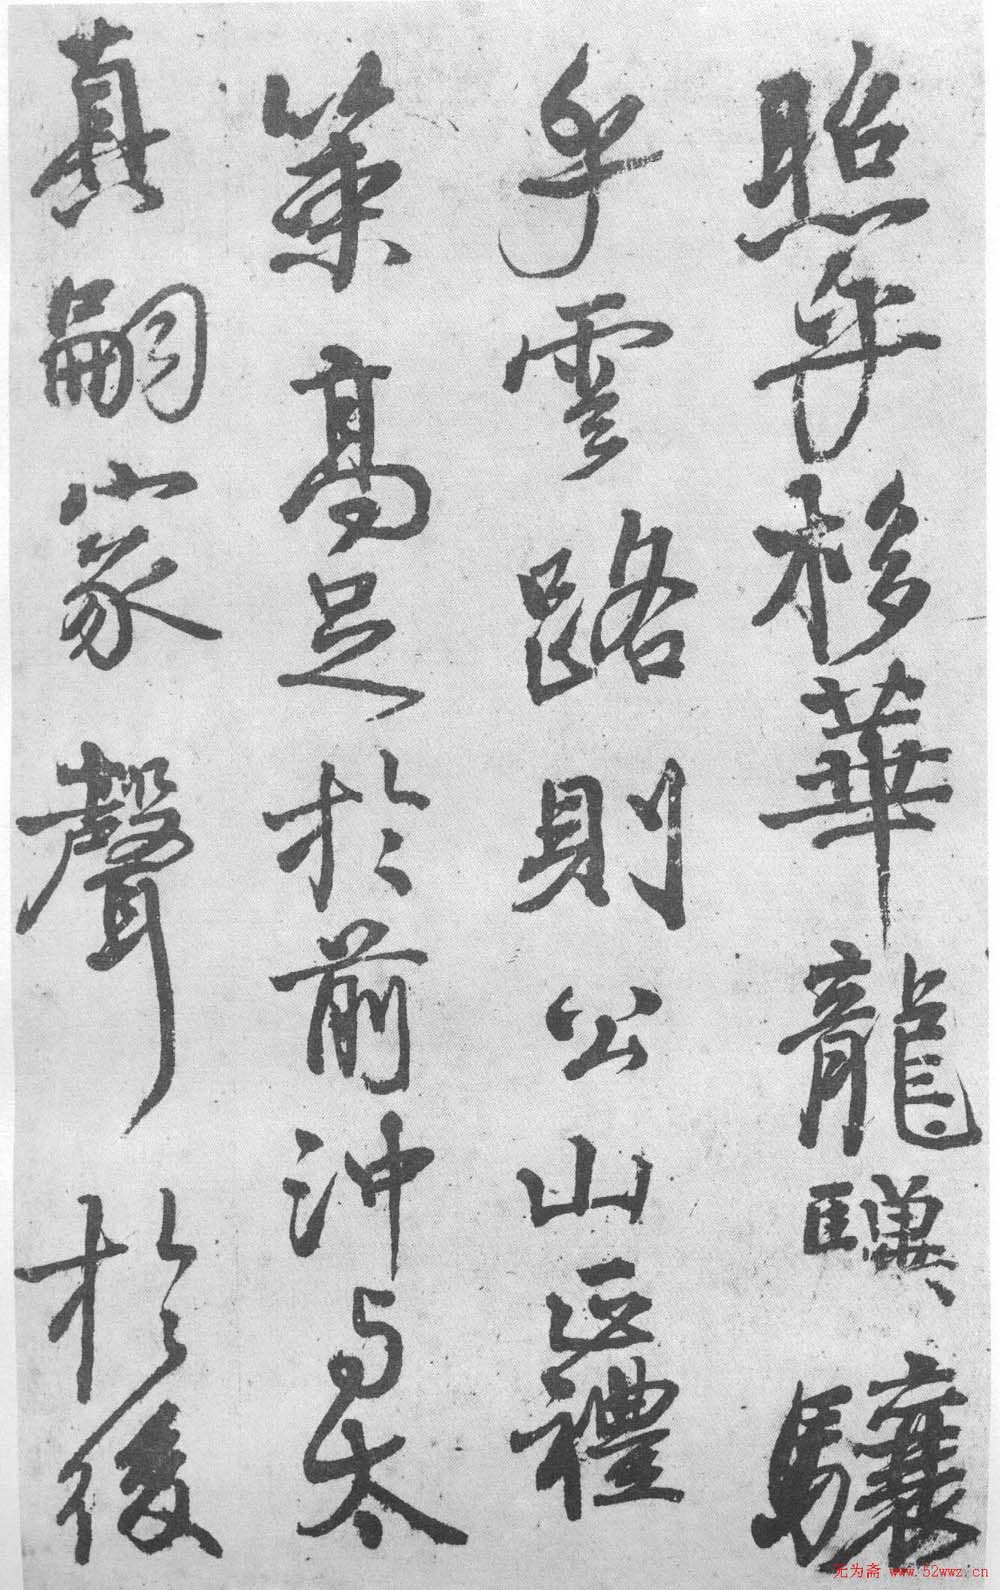 照乎栘華龍驥驤
乎雲路則公山正禮
策高足於前沖与太
真嗣家聲於後
无为斋 www.52wwz.cn